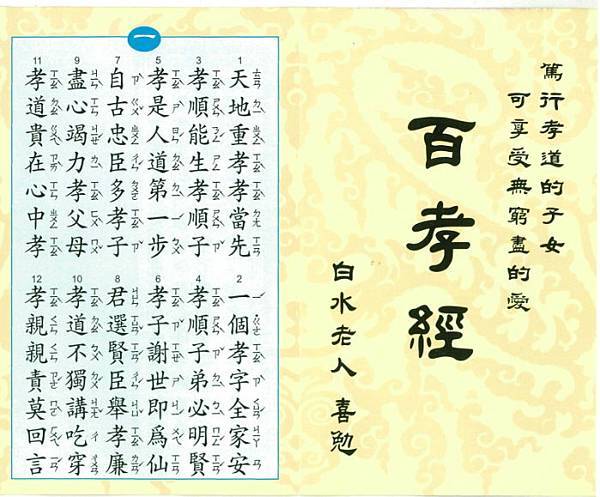 篤行孝道的子女
可享受無窮盡的愛
百孝經
白水老人 喜勉
一
1 天地重孝孝當先
2 一個孝字全家安
3 孝順能生孝順子
4 孝順子弟必明賢
5 孝是人道第一步
6 孝子謝世即爲仙
7 自古忠臣多孝子
8 君選賢臣舉孝廉
9 盡心竭力孝父母
10 孝道不獨講吃穿
11 孝道貴在心中孝
12 孝親親責莫回言